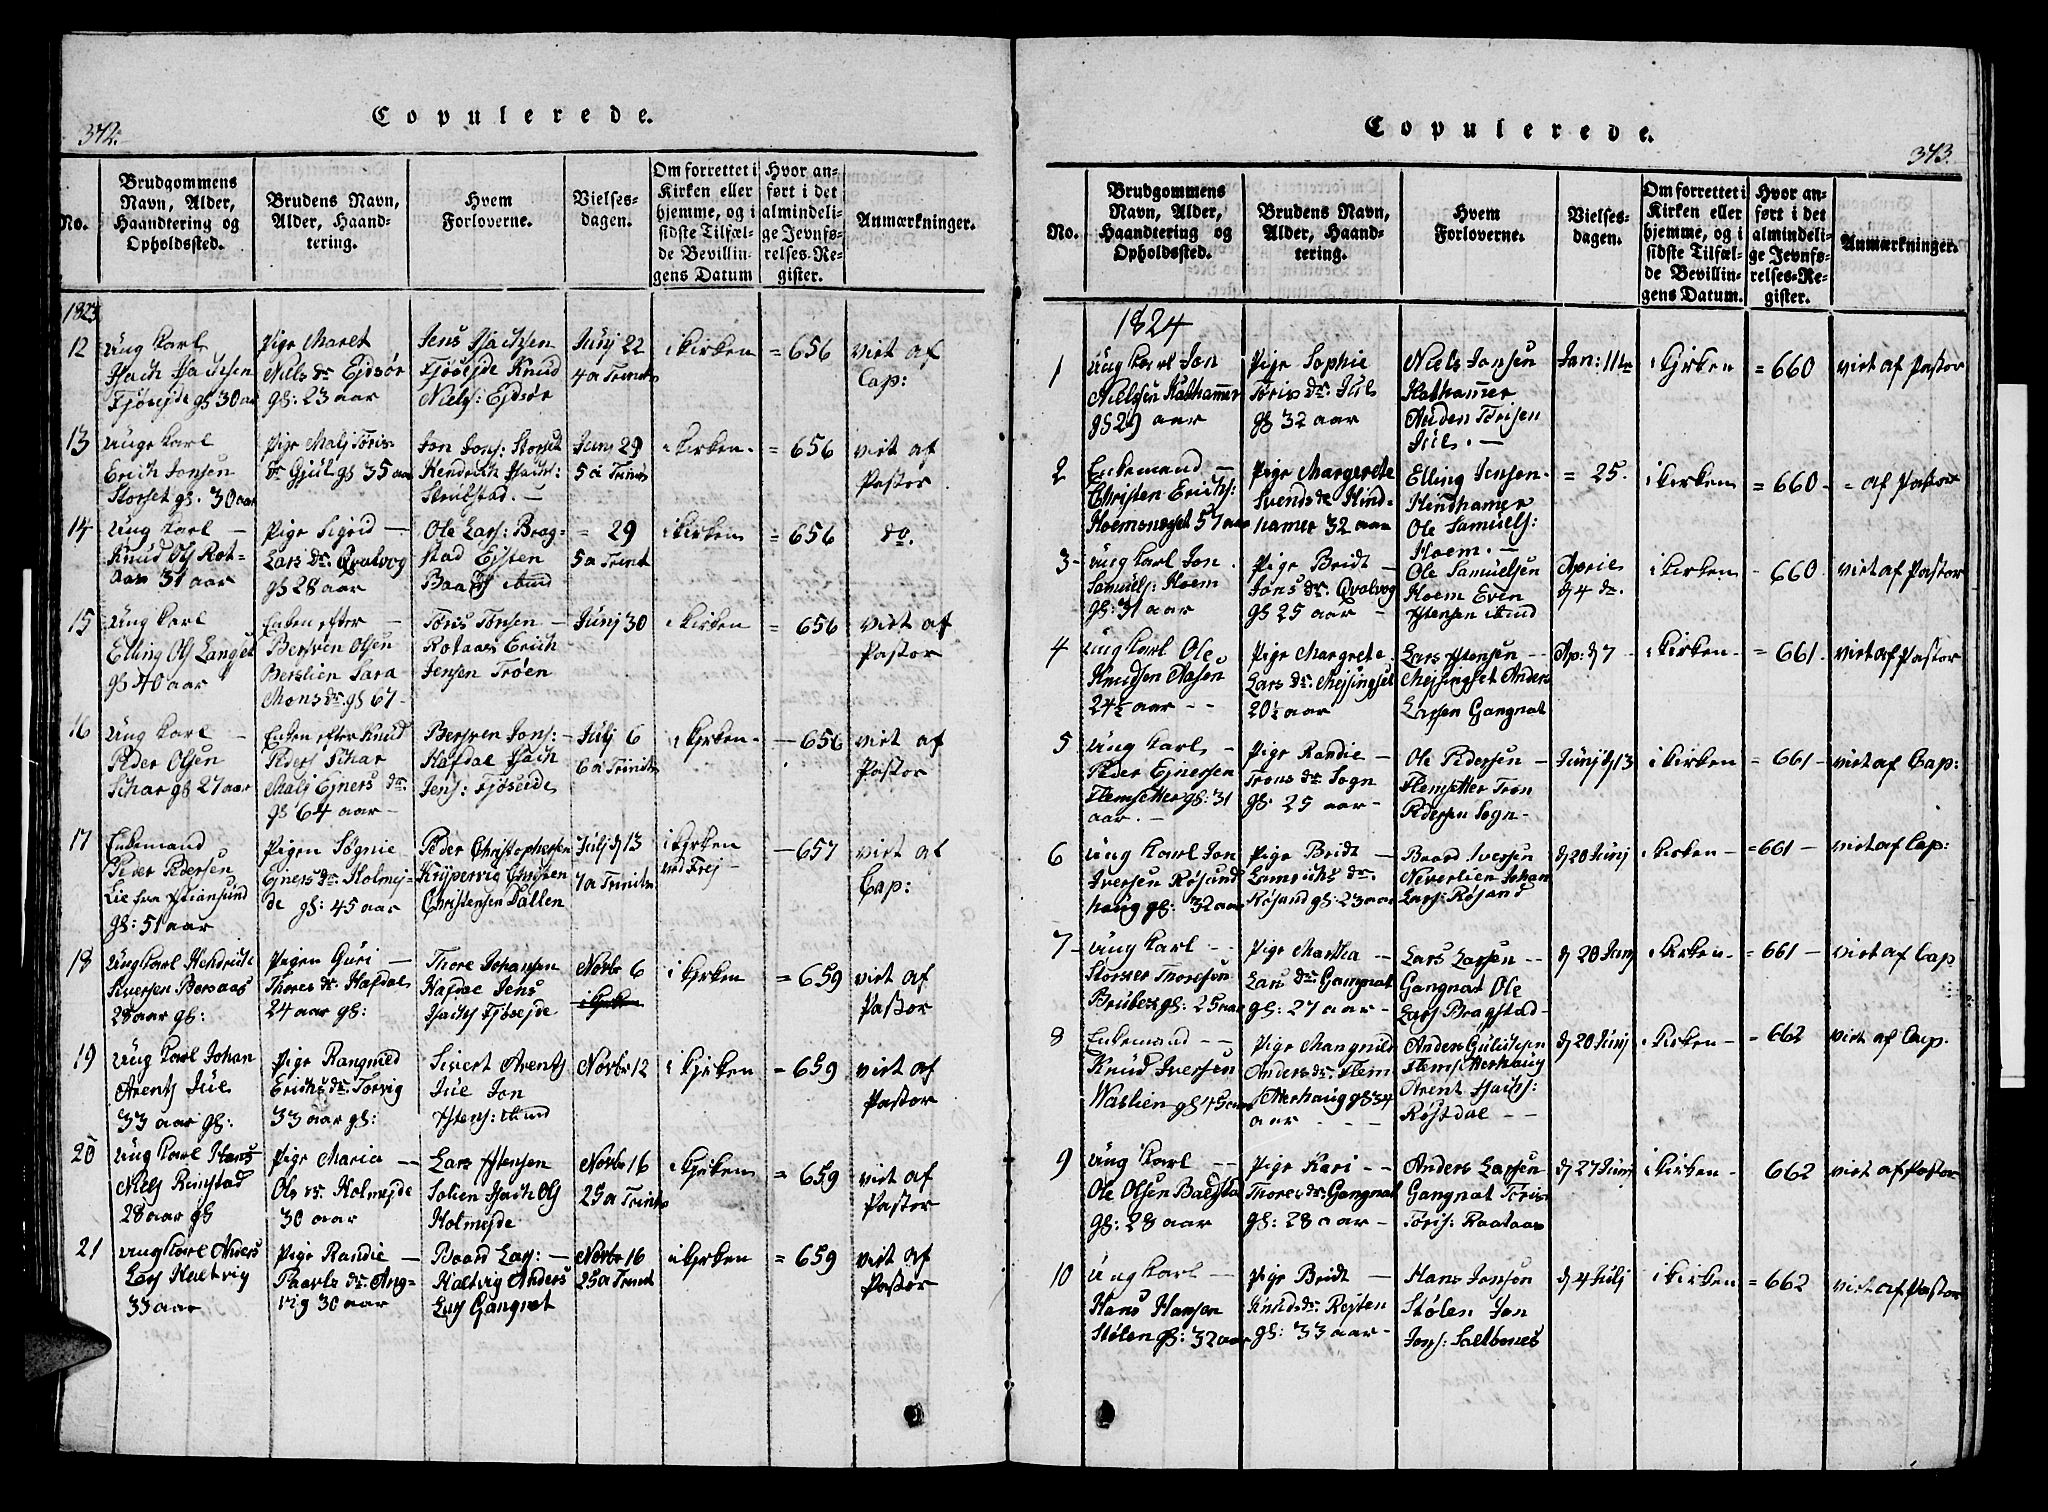 Copulerede.
372.
No.
Brudgommens
Navn, Alder,
Haandtering og
Opholdssted.
Brudens Navn,
Alder, Haand-
tering.
Hvem
Forloverne.
Vielses-
dagen.
Om forrettet i
Kirken eller
hjemme, og i
sidste Tilfæl-
de Bevillin-
gens Datum
Hvor an-
ført i det
almindeli-
ge Jevnfø-
relses-Re-
gister.
Anmærkninger.
1823
12
Ung Karl
Isach Isachsen
Fjøseide gl 30 aar
Pige Maret
Niels dr Ejdsør
gl: 23 aar
Jens Isachsen
Fjøsejde Knud
Niels: Ejdsør
Junj 22
4 a Trinits
i Kirken
= 656
viet af
Cap:
13
Unge Karl
Erich Jonsen
Storset gl. 30 aar
Pige Malj Tøris
dr Gjül gl 35 aar
Jon Jons: Storset
Hendrich Isachs:
Strübstad. —
Junj 29
5 a Trinits
i Kirken -
= 656
viet af
Pastor
14
Ung Karl —
Knud Ols Rot-
aas 31 aar
Pige Sigrid —
Lars dr. Qvalvog
gl 28 aar
Ole Lars: Brag-
stad Ejsten
Baards Aund
= 29
5 a Trinit
i Kirken
= 656
do.
15
Ung Karl
Elling Ols Langset
gl 40 aar
Enken efter —
Bersven Olsen
Berslien Sara
Monsdr. gl 67 -
Tøris Tønsen —
Rotaas Erich
Jensen Trøen
Junj 30
i Kirken
= 656
viet af
Pastor
16
Ung Karl —
Peder Olsen
Schar gl 27 aar
Enken efter Knud
Peders Schar
Malj Ejners dr.
gl 64 aar —
Bersven Jons: -
Hafdal Isach
Jens: Fjøseide
Julj 6
6 a Trinits
i Kjrken -
— 656
viet af
Pastor
17
Enkemand
Peder Pedersen
Lie fra Xtiansund
gl: 51 aar
Pigen Søgnie
Ejners dr: Holmej-
de gl: 45 aar
Peder Christophersen
Knypervig Christen
Christensen Dallen
Julj d 13
7 a Trinits
i Kjrken
ved Frej
— 657
viet af
Cap:
18
Ung Karl Hendrich
Siversen Borsaas
28 aar gl:
Pigen Guri —
Thores dr Hafdal
24 aar gl:
Thore Johansen
Hafdal Jens
Isachs Fjøsejde
Novbr 6
i Kjrken
i Kjrken
= 659
viet af
Pastor
19
Ung Karl Johan
Arents Jüe
33 aar gl:
Pige Rangnied
Erichs dr Torvig
33 aar gl:
Sivert Arents
Jüe Jon
Istens: Aund
Novbr 12
i Kjrken
= 659
viet af
Pastor
20
Ung Karl Hans
Niels Rimstad
28 aar gl
Pige Maria —
Ols dr. Holmejde
30 aar
Lars Istensen
Solien Isach Ols
Holmejde
Novbr 16
25 a Trinits
i Kjrken
= 659
viet af
Pastor
21
Ung Karl Anders
Lars Haltvig
33 aar
Pige Randie —
Paarls dr. Ang-
vig 30 aar
Baard Lars: —
Haltvig Anders
Lars Gangnat
Novbr 16
25 a Trinit
i Kjrken
= 659
viet af
Pastor
Copulerede.
373.
No.
Brudgommens
Navn, Alder,
Haandtering og
Opholdssted.
Brudens Navn,
Alder, Haand-
tering.
Hvem
Forloverne.
Vielses-
dagen.
Om forrettet i
Kirken eller
hjemme, og i
sidste Tilfæl-
de Bevillin-
gens Datum.
Hvor an-
ført i det
almindeli-
ge Jevnfø-
relses-Re-
gister.
Anmærkninger.
1824
1
Ung Karl Jon
Nielsen Kathammer
gl 29 aar
Pige Sophie
Tøris dr. Jül
gl 32 aar
Niels Jonsen
Kathammer
Anden Tørisen
Jül. —
Jan: 11te
i Kjrken
= 660
viet af Pastor
2
Enkemand —
Christen Erichs:
Hoemsnæset 57 aar
Pige Margerete
Svends dr Hind-
hamer 32 aar
Elling Jensen -
Hindhamer
Ole Samuels:
Hoem. —
= 25.
i Kirken
= 660 -
= af Pastor
3 -
Ung Karl Jon
Samuels: Hoem
gl: 31 aar
Pige Bridt —
Jons dr: Qvalvog
gl 25 aar -
Ole Samuelsen
Hoem Even
Istensen Aund
Aprie
d 4 de.
i Kirken
- 660
viet af Pastor
4
Ung Karl Ole
Knudsen Aasen
24½ aar - -
Pige Margrete
Lars dr. Mejsingset
20½ aar
Lars Istensen -
Mejsingset Anders
Larsen Gangnat
Ap: d 7
i Kirken -
= 661
viet af Pastor
5
Ung Karl -
Peder Ejnersen
Flemsetter gl: 31
aar. —
Pige Randie —
Trons dr. Sogn
gl. 25 aar -
Ole Pedersen -
Flemsetter Tron
Pedersen Sogn -
Junj d 13
i Kirken
= 661 -
viet af Cap:
6
Ung Karl Jon
Iversen Røsand
haug gl: 32 aar
Pige Bridt —
dr.
Røsand gl: 23 aar
Baard Iversen
Neverlien Johan
Lars: Røsand
d 20 Junj
i Kirken -
= 661 —
viet af Cap:
7 -
Ung Karl - -
Thoresen
gl: 25 aar
Pige Martha —
Lars dr: Gangnat
gl: 27 aar -
Lars Larsen - -
Gangnat Ole
Lars Bragstad -
d 20 Junj
i Kirken -
= 661 —
viet af Cap
8
Enkemand - -
Knud Iversen
Waslien gl 45 aar
Pige Mangnild
Anders dr: Flem
setterhaug gl 34
aar - - -
Anders
Flemsetterhaug
Arent Isachs:
Røstdal - -
d 20 Junj
i Kirken -
= 662
viet af Cap.
9
Ung Karl - -
Ole Olsen
gl: 28 aar
Pige Kari - -
Thore dr: Gangnat
gl: 28 aar -
Anders Larsen
Gangnat Tøris
Tøris: Raataas
d 27 Junj
i Kirken -
662
viet af Pastor
10
Ung Karl —
Hans Hansen
Stølen gl: 32 aar
Pige Bridt —
Knuds dr: Rejten
gl: 33 aar -
Hans Jonsen
Stølen Jon
Jons: Saltbones
d 4 Julj
i Kirken
= 662
viet af Pastor